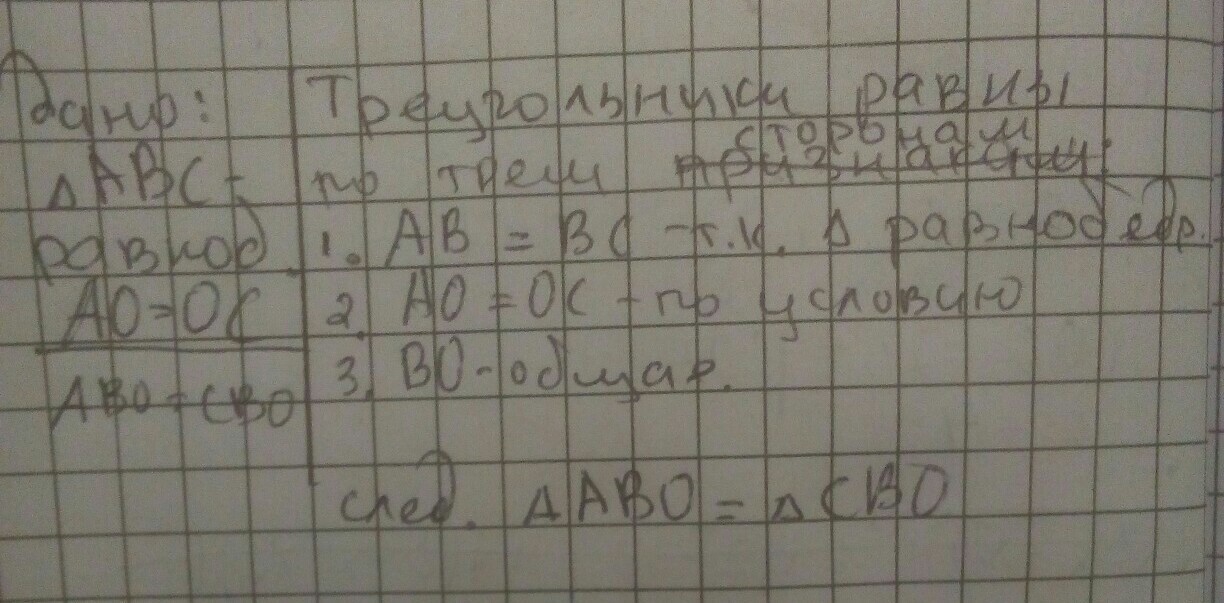 Дано:
△ABC -
равноб.
AO=OC
ABO = CBO
Треугольники равны
по трём сторонам
1. AB = BC - т.к. △ равнобедр.
2. AO = OC - по условию
3. BO - общая.
след. △ABO = △CBO